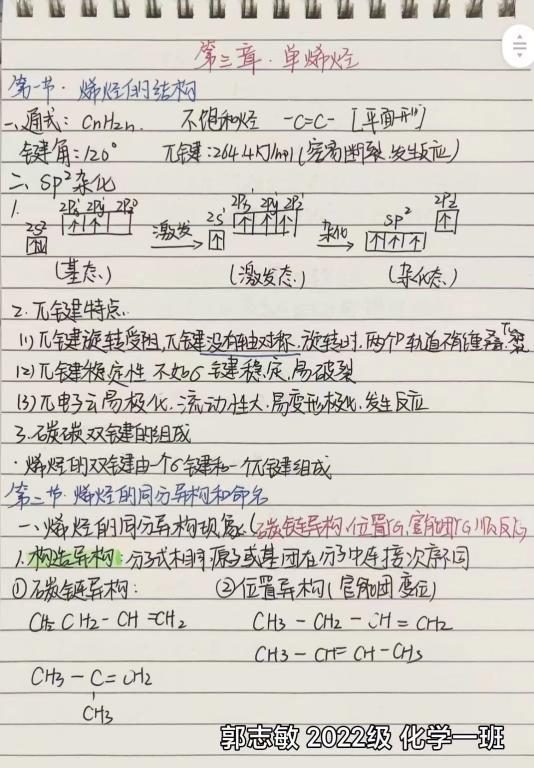 第三章·单烯烃
第一节·烯烃的结构
一、通式: CnH2n. 不饱和烃 -C=C- [平面形]
键角:120° π键:264.4KJ/mol(容易断裂.发生反应)
二、sp²杂化
1. 2s² 2Px¹ 2Py¹ 2Pz⁰ 激发 2s¹ 2Px¹ 2Py¹ 2Pz¹ 杂化 sp² 2Pz
(基态.) (激发态.) (杂化态.)
2.π键特点.
(1)π键旋转受阻,π键没有轴对称.旋转时.两个P轨道不能重叠.
(2)π键稳定性 不如σ键稳定.易破裂
(3)π电子云易极化.流动性大.易变形极化.发生反应
3.碳碳双键的组成
·烯烃的双键由一个σ键和一个π键组成
第二节·烯烃的同分异构和命名
一、烯烃的同分异构现象.(碳链异构.位置
1.构造异构:分子式相同原子或基团在分子中连接次序不同
①碳链异构: ②位置异构(官能团变位)
CH3CH2-CH=CH2 CH3-CH2-CH=CH2
CH3-CH=CH-CH3
CH3-C=CH2
CH3
郭志敏 2022级 化学一班